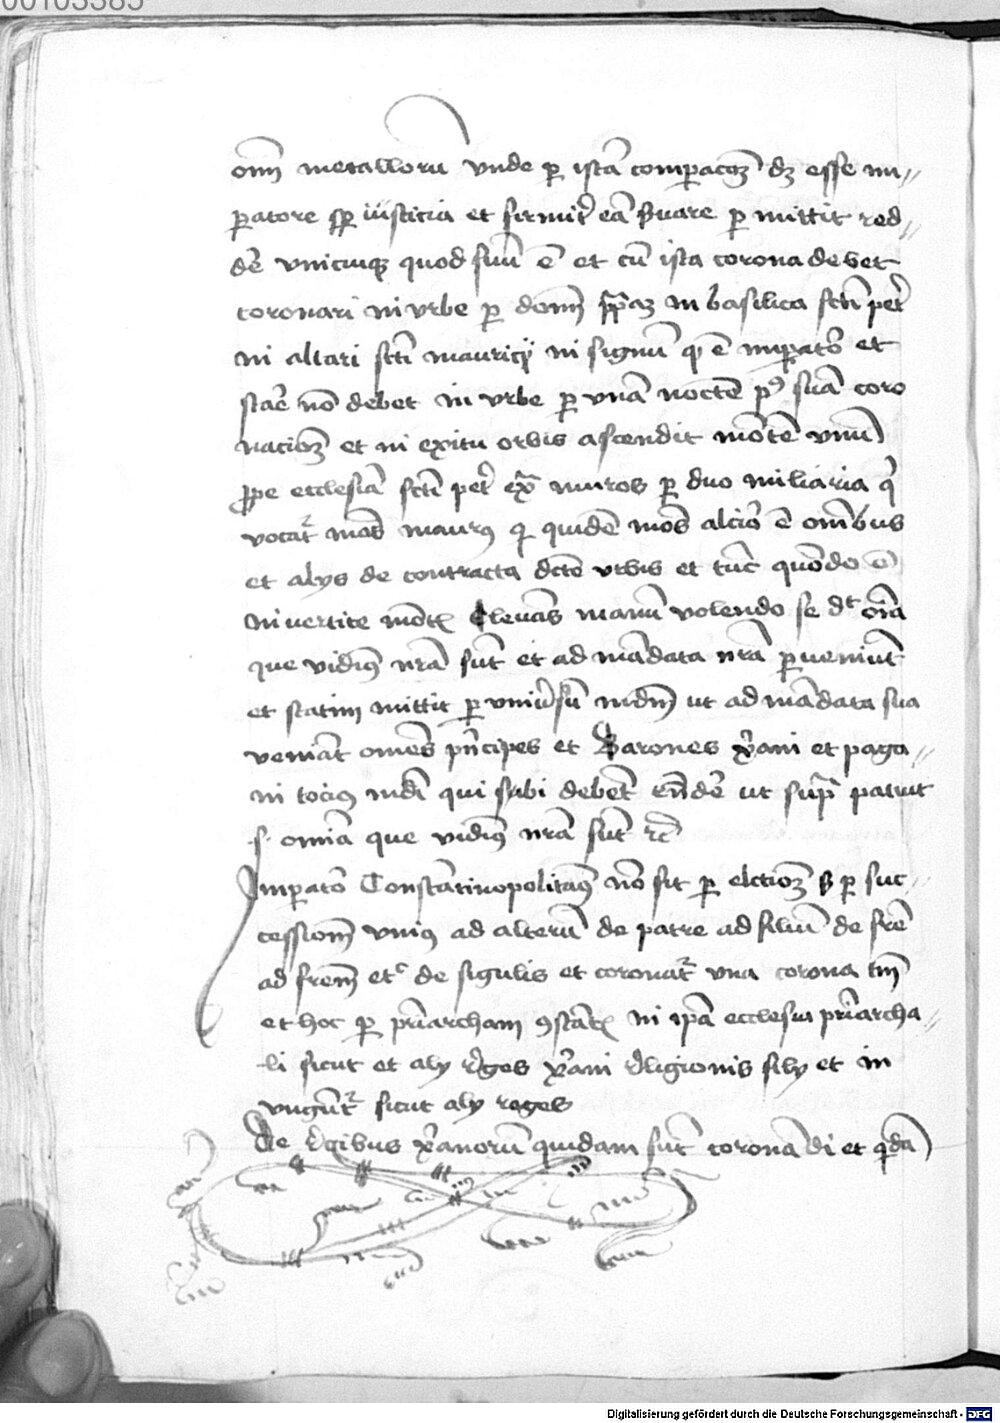 00103385
om̅ metalloru̅ vnde p̱ ista̅ comparac̅oꝫ dꝫ esse im„
peratore sp̱ iusticia et firmit̉ ea̅ s̉uare p̱mittit red„
de̅ vnicuiqꝫ quod suu̅ e̅ et cu̅ ista corona debet
coronari in vrbe p̱ dom̅ pp̅aꝫ in basilica sc̅ti pet̉
in altari sc̅ti mauricij in signu̅ q̱ e̅ imp̱atỏ et
stảe no̅ debet in vrbe p̱ vna̅ nocte̅ pꝰ sua̅ coro
nac̅oꝫ et in exitu orbis ascendit mo̅te̅ vnu̅
ꝓpe ecclesia̅ sc̅ti pet̉ ex̅ muros p̱ duo miliaria q̉
vocat̉ mo̅s maurꝰ qi quide̅ mo̅s alciỏ e̅ om̅ibus
et alys de contracta dc̅te vrbis et tu̅c quo̅do e̅
in vertice mo̅tꝭ Eleua̅s manu̅ volendo se dt om̅ia
que vidimꝰ nr̅a su̅t et ad ma̅data nr̅a p̱ueniu̅t
et statim mittit p̱ vniủsu̅ mu̅dm̅ ut ad ma̅data sua
venia̅t omnes p̉ncipes et Barones xp̉ani et paga„
ni tociꝰ mu̅di qui sibi debe̅t te̅dẻ ut sup̅ patuit
s. omnia que vidimꝰ nr̅a su̅t rc̅
Imperatỏ Constantinopolitanꝰ no̅ fit p̱ elc̅tioꝫ ẞ p̱ suc„
cessione̅ vniꝰ ad alteru̅ de patre ad filiu̅ de fr̅e
ad fr̅em etc de sigulis et coronat̉ vna corona tm̅
et hoc p̱ pr̉iarcham ꝯsta̅tꝭ in ip̅a ecclesia pr̉iarcha„
li sicut et aly r̉eges xp̉ani r̉eligionis fily et in
vngu̅t̉ sicut aly reges
De r̉egibus xp̉anoru̅ quidam su̅t corona̅di et q̉da̅
Digitalisierung gefördert durch die Deutsche Forschungsgemeinschaft - DFG